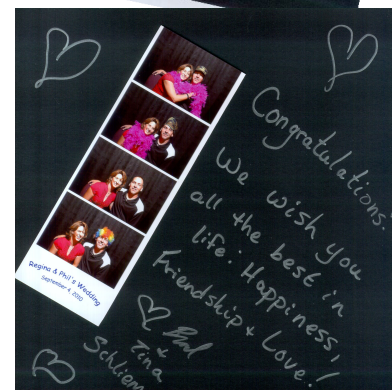 Regina & Phil's Wedding
September 4, 2010
Congratulations.
We wish you
all the best in
life: Happiness,
Friendship + Love!
&
Tina